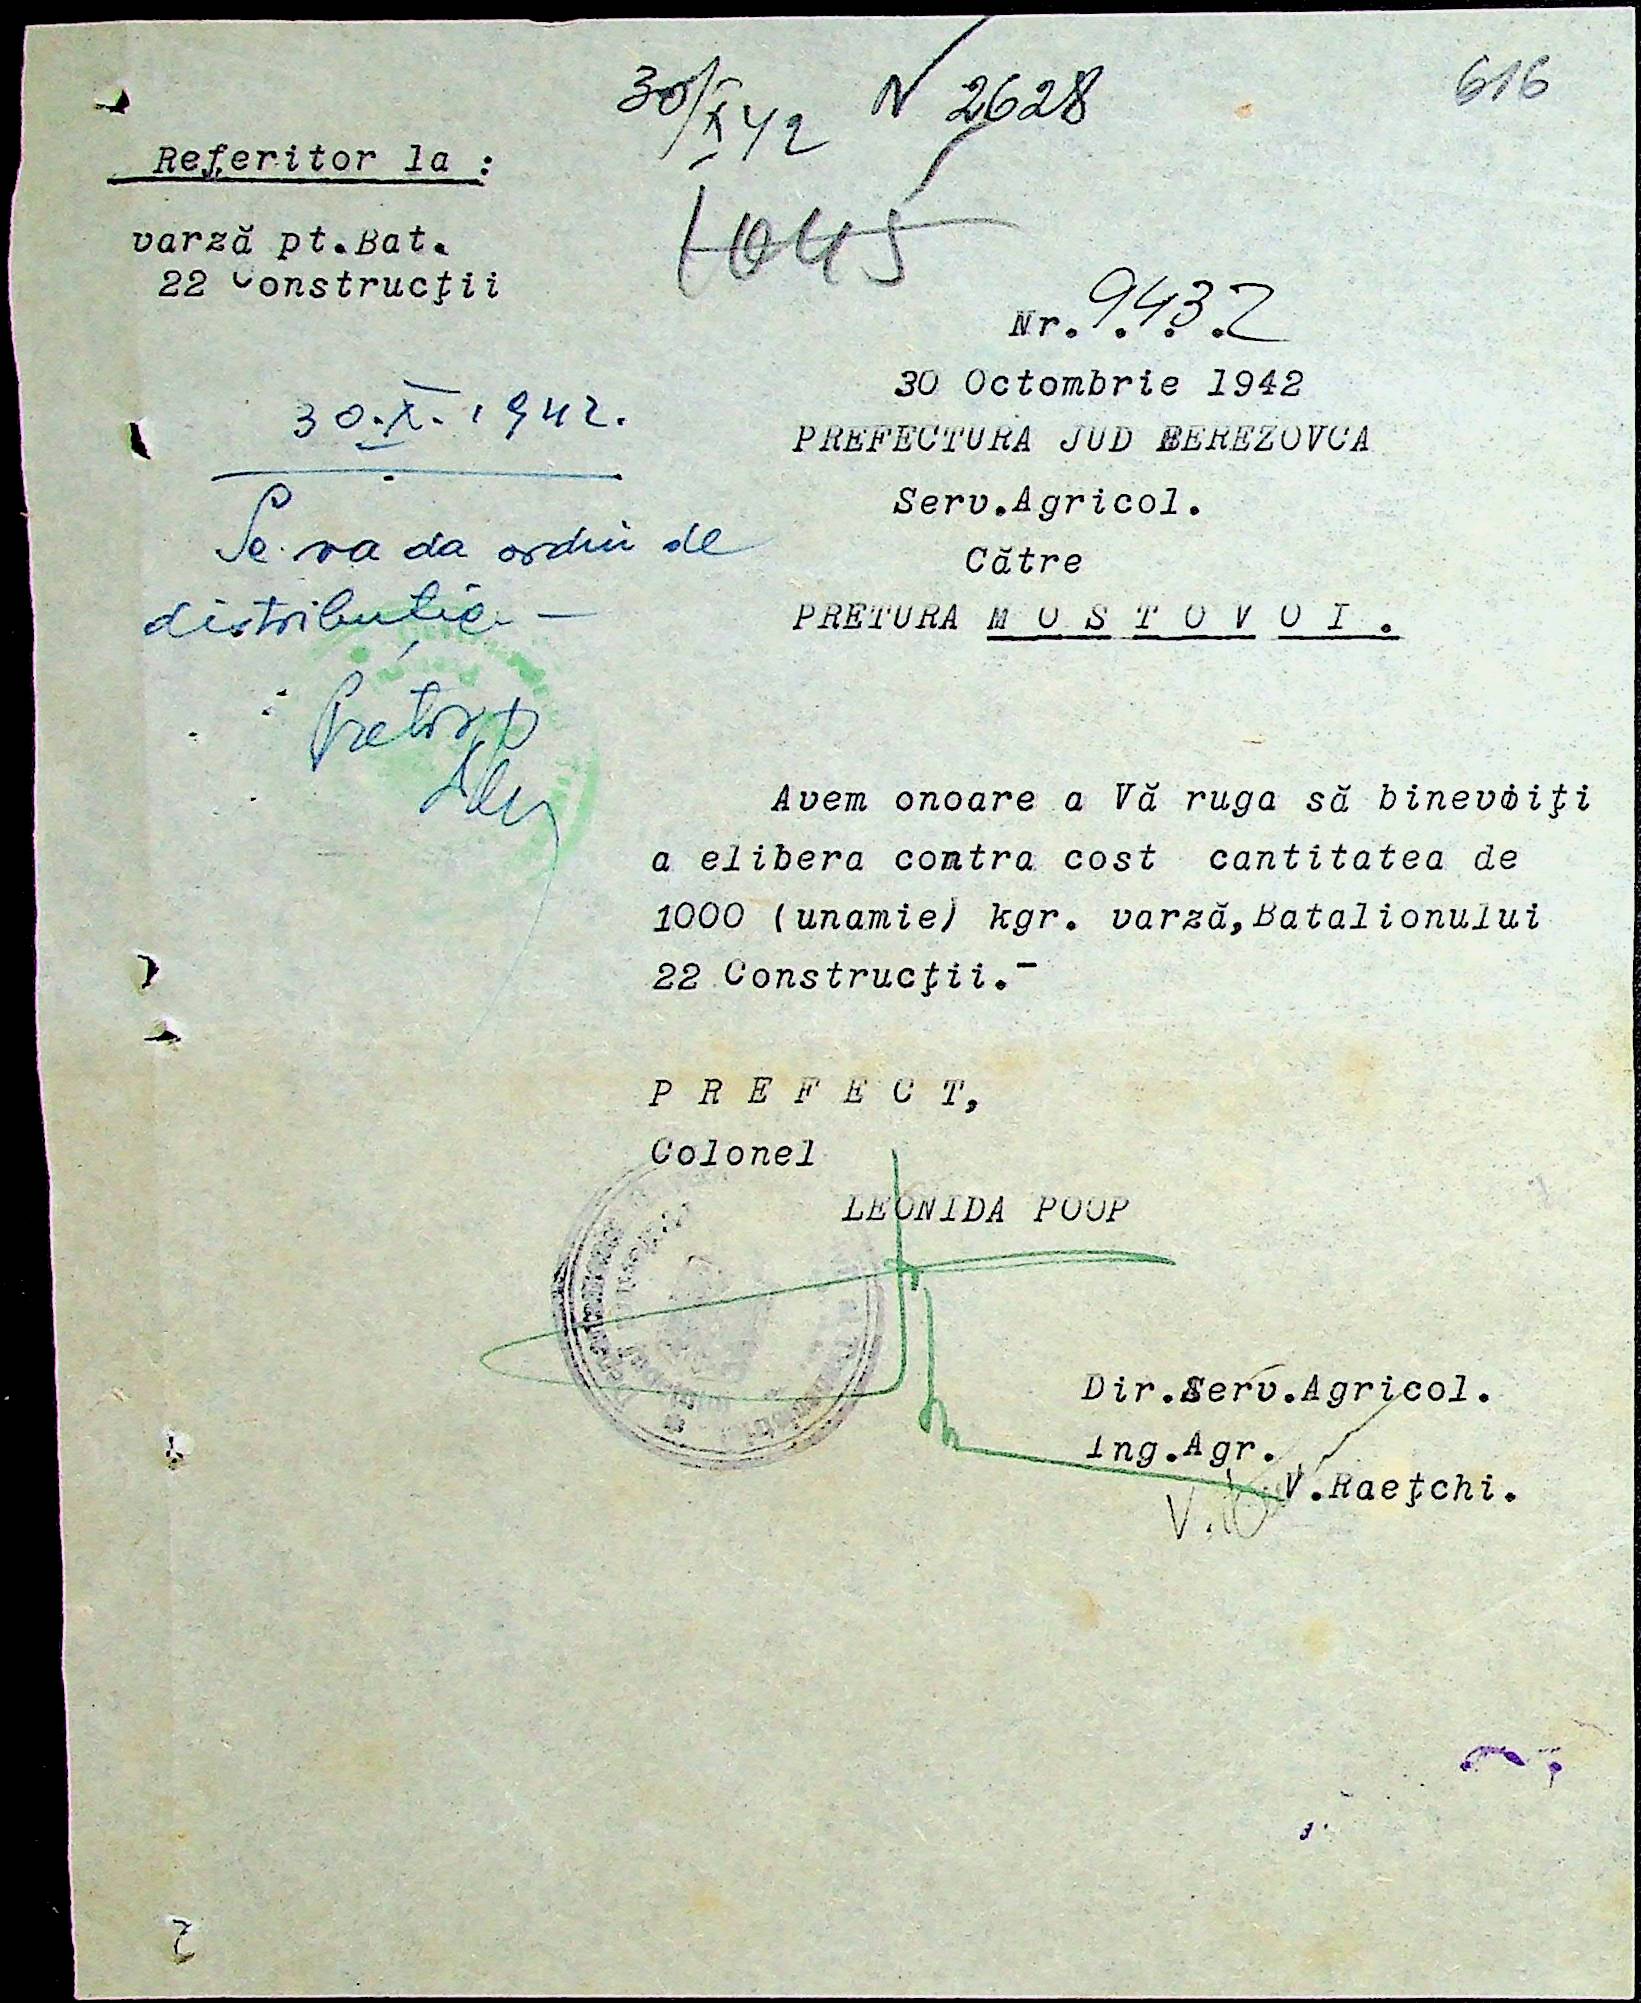 30/X 42 N 2628
616
1045
Referitor la :
varză pt.Bat.
22 Construcţii
Nr. 9432
30 Octombrie 1942
PREFECTURA JUD BEREZOVCA
Serv.Agricol.
Către
PRETURA M O S T O V O I .
30.X.1942.
Se va da ordin de
distribuție —
Pretor
Avem onoare a Vă ruga să binevoiţi
a elibera contra cost cantitatea de
1000 (unamie) kgr. varză,Batalionului
22 Construcţii.-
P R E F E C T,
Colonel
LEONIDA POOP
Dir.Serv.Agricol.
Ing.Agr.
V.Raeţchi.